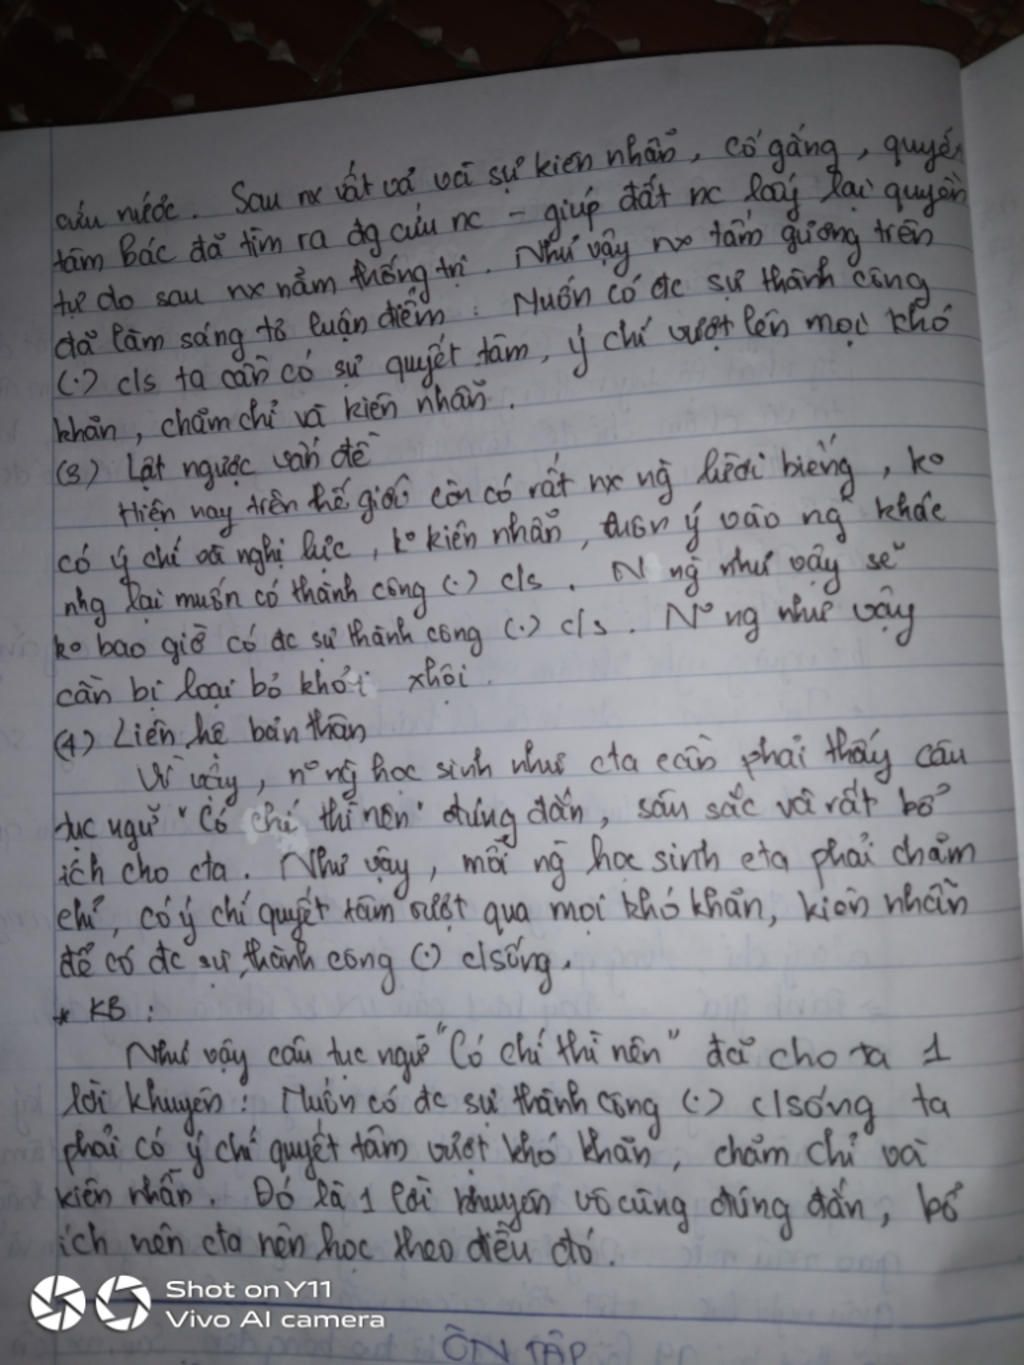 cứu nước. Sau nx vất vả và sự kiên nhẫn, cố gắng, quyết
tâm Bác đã tìm ra đg cứu nc - giúp đất nc lấy lại quyền
tự do sau nx năm thống trị. Như vậy nx tấm gương trên
đã làm sáng tỏ luận điểm: Muốn có đc sự thành công
(.) c/s ta cần có sự quyết tâm, ý chí vượt lên mọi khó
khăn, chăm chỉ và kiên nhẫn.
(3) Lật ngược vấn đề
Hiện nay trên thế giới còn có rất nx ng̀ lười biếng, ko
có ý chí và nghị lực, ko kiên nhẫn, ý vào ng̀ khác
nhg lại muốn có thành công (.) c/s. N ng̀ như vậy sẽ
ko bao giờ có đc sự thành công (.) c/s. No ng như vậy
cần bị loại bỏ khỏi xhội.
(4) Liên hệ bản thân
Vì vậy, no ng̀ học sinh như cta cần phải thấy câu
tục ngữ "Có chí thì nên" đúng đắn, sâu sắc và rất bổ
ích cho cta. Như vậy, mỗi ng̀ học sinh cta phải chăm
chỉ, có ý chí quyết tâm vượt qua mọi khó khăn, kiên nhẫn
để có đc sự thành công (.) c/sống.
* KB:
Như vậy câu tục ngữ "Có chí thì nên" đã cho ta 1
lời khuyên: Muốn có đc sự thành công (.) c/sống ta
phải có ý chí quyết tâm vượt khó khăn, chăm chỉ và
kiên nhẫn. Đó là 1 lời khuyên vô cùng đúng đắn, bổ
ích nên cta nên học theo điều đó.
Shot on Y11
Vivo AI camera
ÔN TẬP